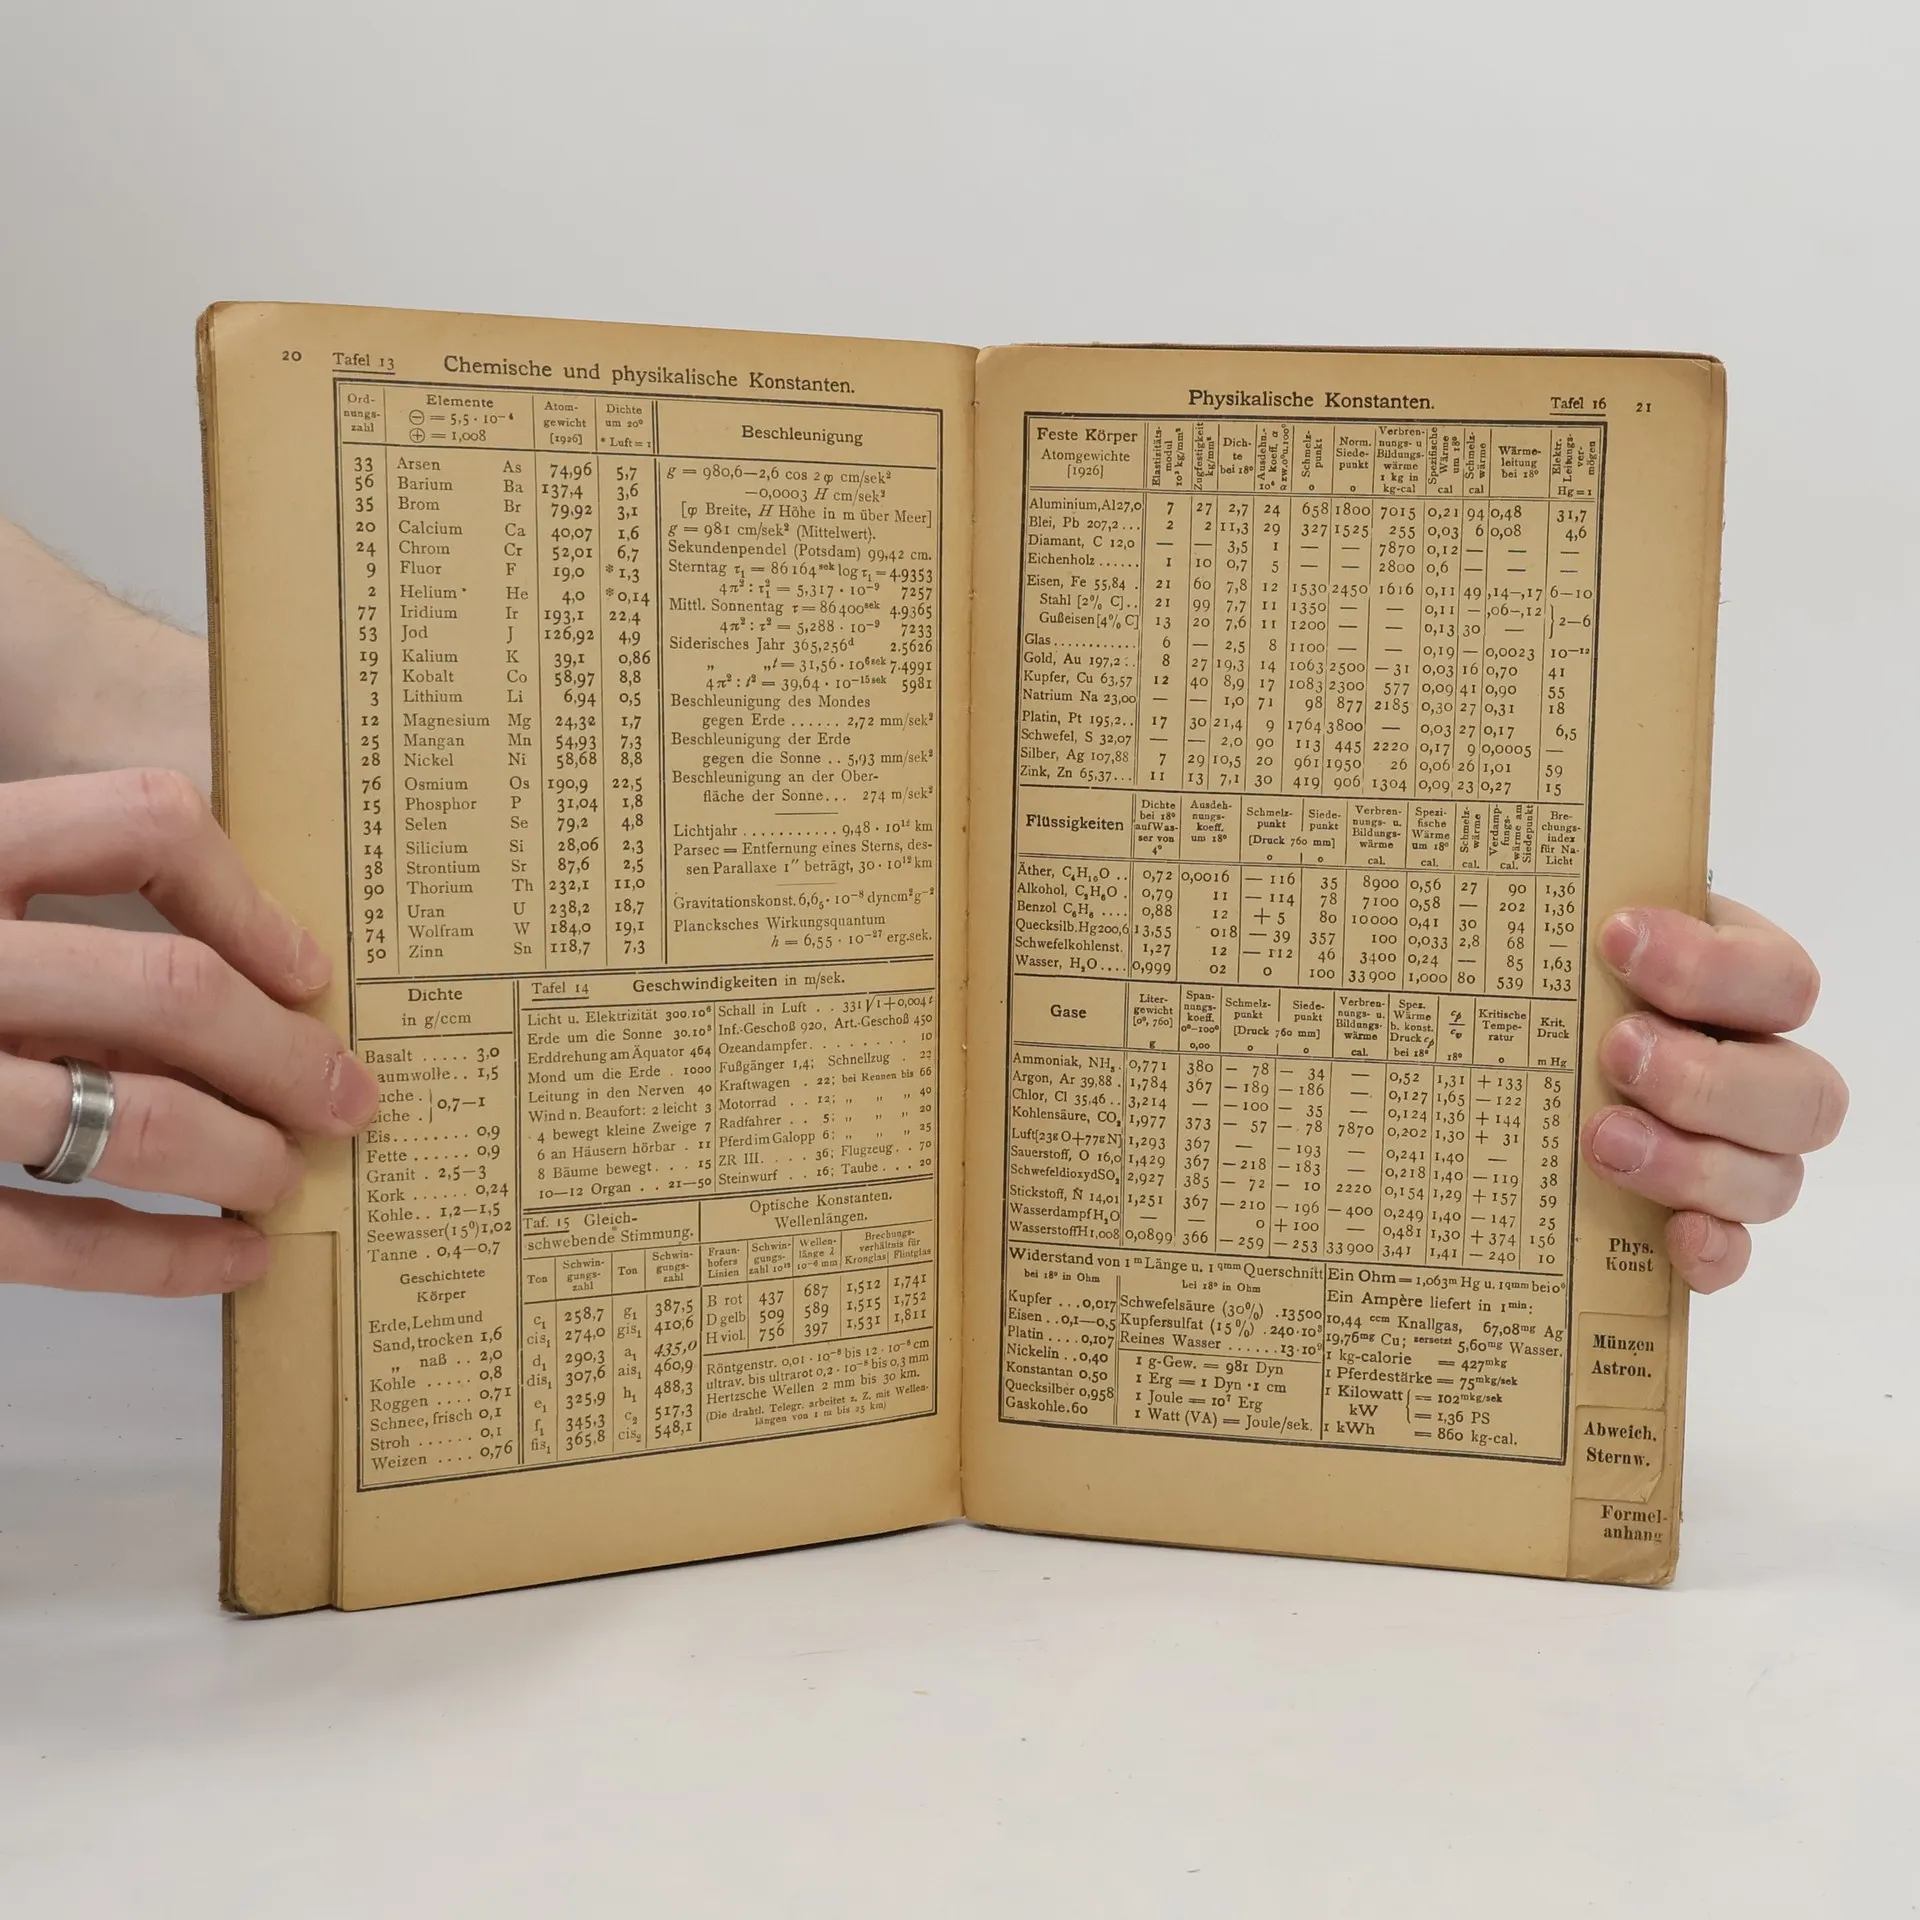 20 Tafel 13 Chemische und physikalische Konstanten.
Ord-nungs-zahl | Elemente ⊖ = 5,5 · 10⁻⁴ ⊕ = 1,008 | Atom-gewicht [1926] | Dichte um 20° * Luft = 1 | Beschleunigung
33 Arsen As 74,96 5,7
56 Barium Ba 137,4 3,6
35 Brom Br 79,92 3,1
20 Calcium Ca 40,07 1,6
24 Chrom Cr 52,01 6,7
9 Fluor F 19,0 *1,3
2 Helium He 4,0 *0,14
77 Iridium Ir 193,1 22,4
53 Jod J 126,92 4,9
19 Kalium K 39,1 0,86
27 Kobalt Co 58,97 8,8
3 Lithium Li 6,94 0,5
12 Magnesium Mg 24,32 1,7
25 Mangan Mn 54,93 7,3
28 Nickel Ni 58,68 8,8
76 Osmium Os 190,9 22,5
15 Phosphor P 31,04 1,8
34 Selen Se 79,2 4,8
14 Silicium Si 28,06 2,3
38 Strontium Sr 87,6 2,5
90 Thorium Th 232,1 11,0
92 Uran U 238,2 18,7
74 Wolfram W 184,0 19,1
50 Zinn Sn 118,7 7,3
g = 980,6—2,6 cos 2φ cm/sek²
—0,0003 H cm/sek²
[φ Breite, H Höhe in m über Meer]
g = 981 cm/sek² (Mittelwert).
Sekundenpendel (Potsdam) 99,42 cm.
Sterntag τ₁ = 86164ˢᵉᵏ log τ₁ = 4.9353
4π² : τ₁² = 5,317 · 10⁻⁹ 7257
Mittl. Sonnentag τ = 86400ˢᵉᵏ 4.9365
4π² : τ² = 5,288 · 10⁻⁹ 7233
Siderisches Jahr 365,256ᵈ 2.5626
„ „ t = 31,56 · 10⁶ ˢᵉᵏ 7.4991
4π² : t² = 39,64 · 10⁻¹⁵ ˢᵉᵏ 5981
Beschleunigung des Mondes
gegen Erde ...... 2,72 mm/sek²
Beschleunigung der Erde
gegen die Sonne .. 5,93 mm/sek²
Beschleunigung an der Ober-
fläche der Sonne... 274 m/sek²
Lichtjahr ........... 9,48 · 10¹² km
Parsec = Entfernung eines Sterns, des-
sen Parallaxe 1″ beträgt, 30 · 10¹² km
Gravitationskonst. 6,6₅ · 10⁻⁸ dyncm²g⁻²
Plancksches Wirkungsquantum
h = 6,55 · 10⁻²⁷ erg.sek.
Dichte
in g/ccm
Basalt ..... 3,0
aumwolle.. 1,5
uche .
iche . } 0,7—1
Eis........ 0,9
Fette ...... 0,9
Granit . 2,5—3
Kork ...... 0,24
Kohle.. 1,2—1,5
Seewasser(15°)1,02
Tanne . 0,4—0,7
Geschichtete
Körper
Erde, Lehm und
Sand, trocken 1,6
„ naß .. 2,0
Kohle ..... 0,8
Roggen .... 0,71
Schnee, frisch 0,1
Stroh ...... 0,1
Weizen .... 0,76
Tafel 14 Geschwindigkeiten in m/sek.
Licht u. Elektrizität 300.10⁶
Erde um die Sonne 30.10³
Erddrehung am Äquator 464
Mond um die Erde . 1000
Leitung in den Nerven 40
Wind n. Beaufort: 2 leicht 3
4 bewegt kleine Zweige 7
6 an Häusern hörbar . 11
8 Bäume bewegt... 15
10—12 Organ . . 21—50
Schall in Luft . . 331 √1+0,004 t
Inf.-Geschoß 920, Art.-Geschoß 450
Ozeandampfer........ 10
Fußgänger 1,4; Schnellzug . 22
Kraftwagen . 22; bei Rennen bis 66
Motorrad . . 12; „ „ „ 40
Radfahrer . . 5; „ „ „ 20
Pferd im Galopp 6; „ „ „ 25
ZR III..... 36; Flugzeug. . 70
Steinwurf . . 16; Taube... 20
Taf. 15 Gleich-
schwebende Stimmung.
Ton | Schwin-gungs-zahl | Ton | Schwin-gungs-zahl
c₁ 258,7 g₁ 387,5
cis₁ 274,0 gis₁ 410,6
d₁ 290,3 a₁ 435,0
dis₁ 307,6 ais₁ 460,9
e₁ 325,9 h₁ 488,3
f₁ 345,3 c₂ 517,3
fis₁ 365,8 cis₂ 548,1
Optische Konstanten.
Wellenlängen.
Fraun-hofers Linien | Schwin-gungs-zahl 10¹² | Wellen-länge λ 10⁻⁶ mm | Brechungs-verhältnis für Kronglas | Flintglas
B rot 437 687 1,512 1,741
D gelb 509 589 1,515 1,752
H viol. 756 397 1,531 1,811
Röntgenstr. 0,01 · 10⁻⁸ bis 12 · 10⁻⁸ cm
ultrav. bis ultrarot 0,2 · 10⁻⁸ bis 0,3 mm
Hertzsche Wellen 2 mm bis 30 km.
(Die drahtl. Telegr. arbeitet z. Z. mit Wellen-
längen von 1 m bis 25 km)
Physikalische Konstanten. Tafel 16 21
Feste Körper Atomgewichte [1926] | Elastizitäts-modul 10³ kg/mm² | Zugfestigkeit kg/mm² | Dich-te bei 18° | Ausdehn.-koeff. α 10⁶ α zw. 0° u. 100° | Schmelz-punkt ° | Norm. Siede-punkt ° | Verbren-nungs- u Bildungs-wärme 1 kg in kg-cal | Spezifische Wärme um 18° cal | Schmelz-wärme cal | Wärme-leitung bei 18° | Elektr. Leitungs-ver-mögen Hg = 1
Aluminium, Al 27,0 7 27 2,7 24 658 1800 7015 0,21 94 0,48 31,7
Blei, Pb 207,2... 2 2 11,3 29 327 1525 255 0,03 6 0,08 4,6
Diamant, C 12,0 — — 3,5 1 — — 7870 0,12 — — —
Eichenholz ...... 1 10 0,7 5 — — 2800 0,6 — — —
Eisen, Fe 55,84 . 21 60 7,8 12 1530 2450 1616 0,11 49 ,14—,17 6—10
Stahl [2% C].. 21 99 7,7 11 1350 — — 0,11 — ,06—,12
Gußeisen [4% C] 13 20 7,6 11 1200 — — 0,13 30 — } 2—6
Glas............ 6 — 2,5 8 1100 — — 0,19 — 0,0023 10⁻¹²
Gold, Au 197,2 .. 8 27 19,3 14 1063 2500 — 31 0,03 16 0,70 41
Kupfer, Cu 63,57 12 40 8,9 17 1083 2300 577 0,09 41 0,90 55
Natrium Na 23,00 — — 1,0 71 98 877 2185 0,30 27 0,31 18
Platin, Pt 195,2.. 17 30 21,4 9 1764 3800 — 0,03 27 0,17 6,5
Schwefel, S 32,07 — — 2,0 90 113 445 2220 0,17 9 0,0005 —
Silber, Ag 107,88 7 29 10,5 20 961 1950 26 0,06 26 1,01 59
Zink, Zn 65,37... 11 13 7,1 30 419 906 1304 0,09 23 0,27 15
Flüssigkeiten | Dichte bei 18° auf Was-ser von 4° | Ausdeh-nungs-koeff. um 18° | Schmelz-punkt | Siede-punkt [Druck 760 mm] | Verbren-nungs- u. Bildungs-wärme cal. | Spezi-fische Wärme um 18° cal. | Schmelz-wärme cal. | Verdamp-fungs-wärme am Siedepunkt cal. | Bre-chungs-index für Na-Licht
Äther, C₄H₁₀O .. 0,72 0,0016 — 116 35 8900 0,56 27 90 1,36
Alkohol, C₂H₆O . 0,79 11 — 114 78 7100 0,58 — 202 1,36
Benzol C₆H₆ .... 0,88 12 + 5 80 10000 0,41 30 94 1,50
Quecksilb. Hg 200,6 13,55 018 — 39 357 100 0,033 2,8 68 —
Schwefelkohlenst. 1,27 12 — 112 46 3400 0,24 — 85 1,63
Wasser, H₂O.... 0,999 02 0 100 33900 1,000 80 539 1,33
Gase | Liter-gewicht [0°, 760] g | Span-nungs-koeff. 0°—100° 0,00 | Schmelz-punkt | Siede-punkt [Druck 760 mm] | Verbren-nungs- u. Bildungs-wärme cal. | Spez. Wärme b. konst. Druck cₚ bei 18° | cₚ/cᵥ 18° | Kritische Tempe-ratur ° | Krit. Druck m Hg
Ammoniak, NH₃. 0,771 380 — 78 — 34 — 0,52 1,31 + 133 85
Argon, Ar 39,88 . 1,784 367 — 189 — 186 — 0,127 1,65 — 122 36
Chlor, Cl 35,46 .. 3,214 — — 100 — 35 — 0,124 1,36 + 144 58
Kohlensäure, CO₂ 1,977 373 — 57 — 78 7870 0,202 1,30 + 31 55
Luft[23g O+77g N] 1,293 367 — — 193 — 0,241 1,40 — 28
Sauerstoff, O 16,0 1,429 367 — 218 — 183 — 0,218 1,40 — 119 38
Schwefeldioxyd SO₂ 2,927 385 — 72 — 10 2220 0,154 1,29 + 157 59
Stickstoff, N 14,01 1,251 367 — 210 — 196 — 400 0,249 1,40 — 147 25
Wasserdampf H₂O — — 0 + 100 — 0,481 1,30 + 374 156
Wasserstoff H 1,008 0,0899 366 — 259 — 253 33900 3,41 1,41 — 240 10
Widerstand von 1 ᵐ Länge u. 1 qmm Querschnitt
bei 18° in Ohm bei 18° in Ohm
Kupfer ...0,017
Eisen ..0,1—0,5
Platin ....0,107
Nickelin ..0,40
Konstantan 0,50
Quecksilber 0,958
Gaskohle.60
Schwefelsäure (30%) .13500
Kupfersulfat (15%) .240·10³
Reines Wasser .......13·10⁹
1 g-Gew. = 981 Dyn
1 Erg = 1 Dyn · 1 cm
1 Joule = 10⁷ Erg
1 Watt (VA) = Joule/sek.
Ein Ohm = 1,063 m Hg u. 1 qmm bei 0°
Ein Ampère liefert in 1 min:
10,44 ccm Knallgas, 67,08 mg Ag
19,76 mg Cu; zersetzt 5,60 mg Wasser.
1 kg-calorie = 427 mkg
1 Pferdestärke = 75 mkg/sek
1 Kilowatt kW { = 102 mkg/sek
= 1,36 PS
1 kWh = 860 kg-cal.
Phys.
Konst
Münzen
Astron.
Abweich.
Sternw.
Formel-
anhang